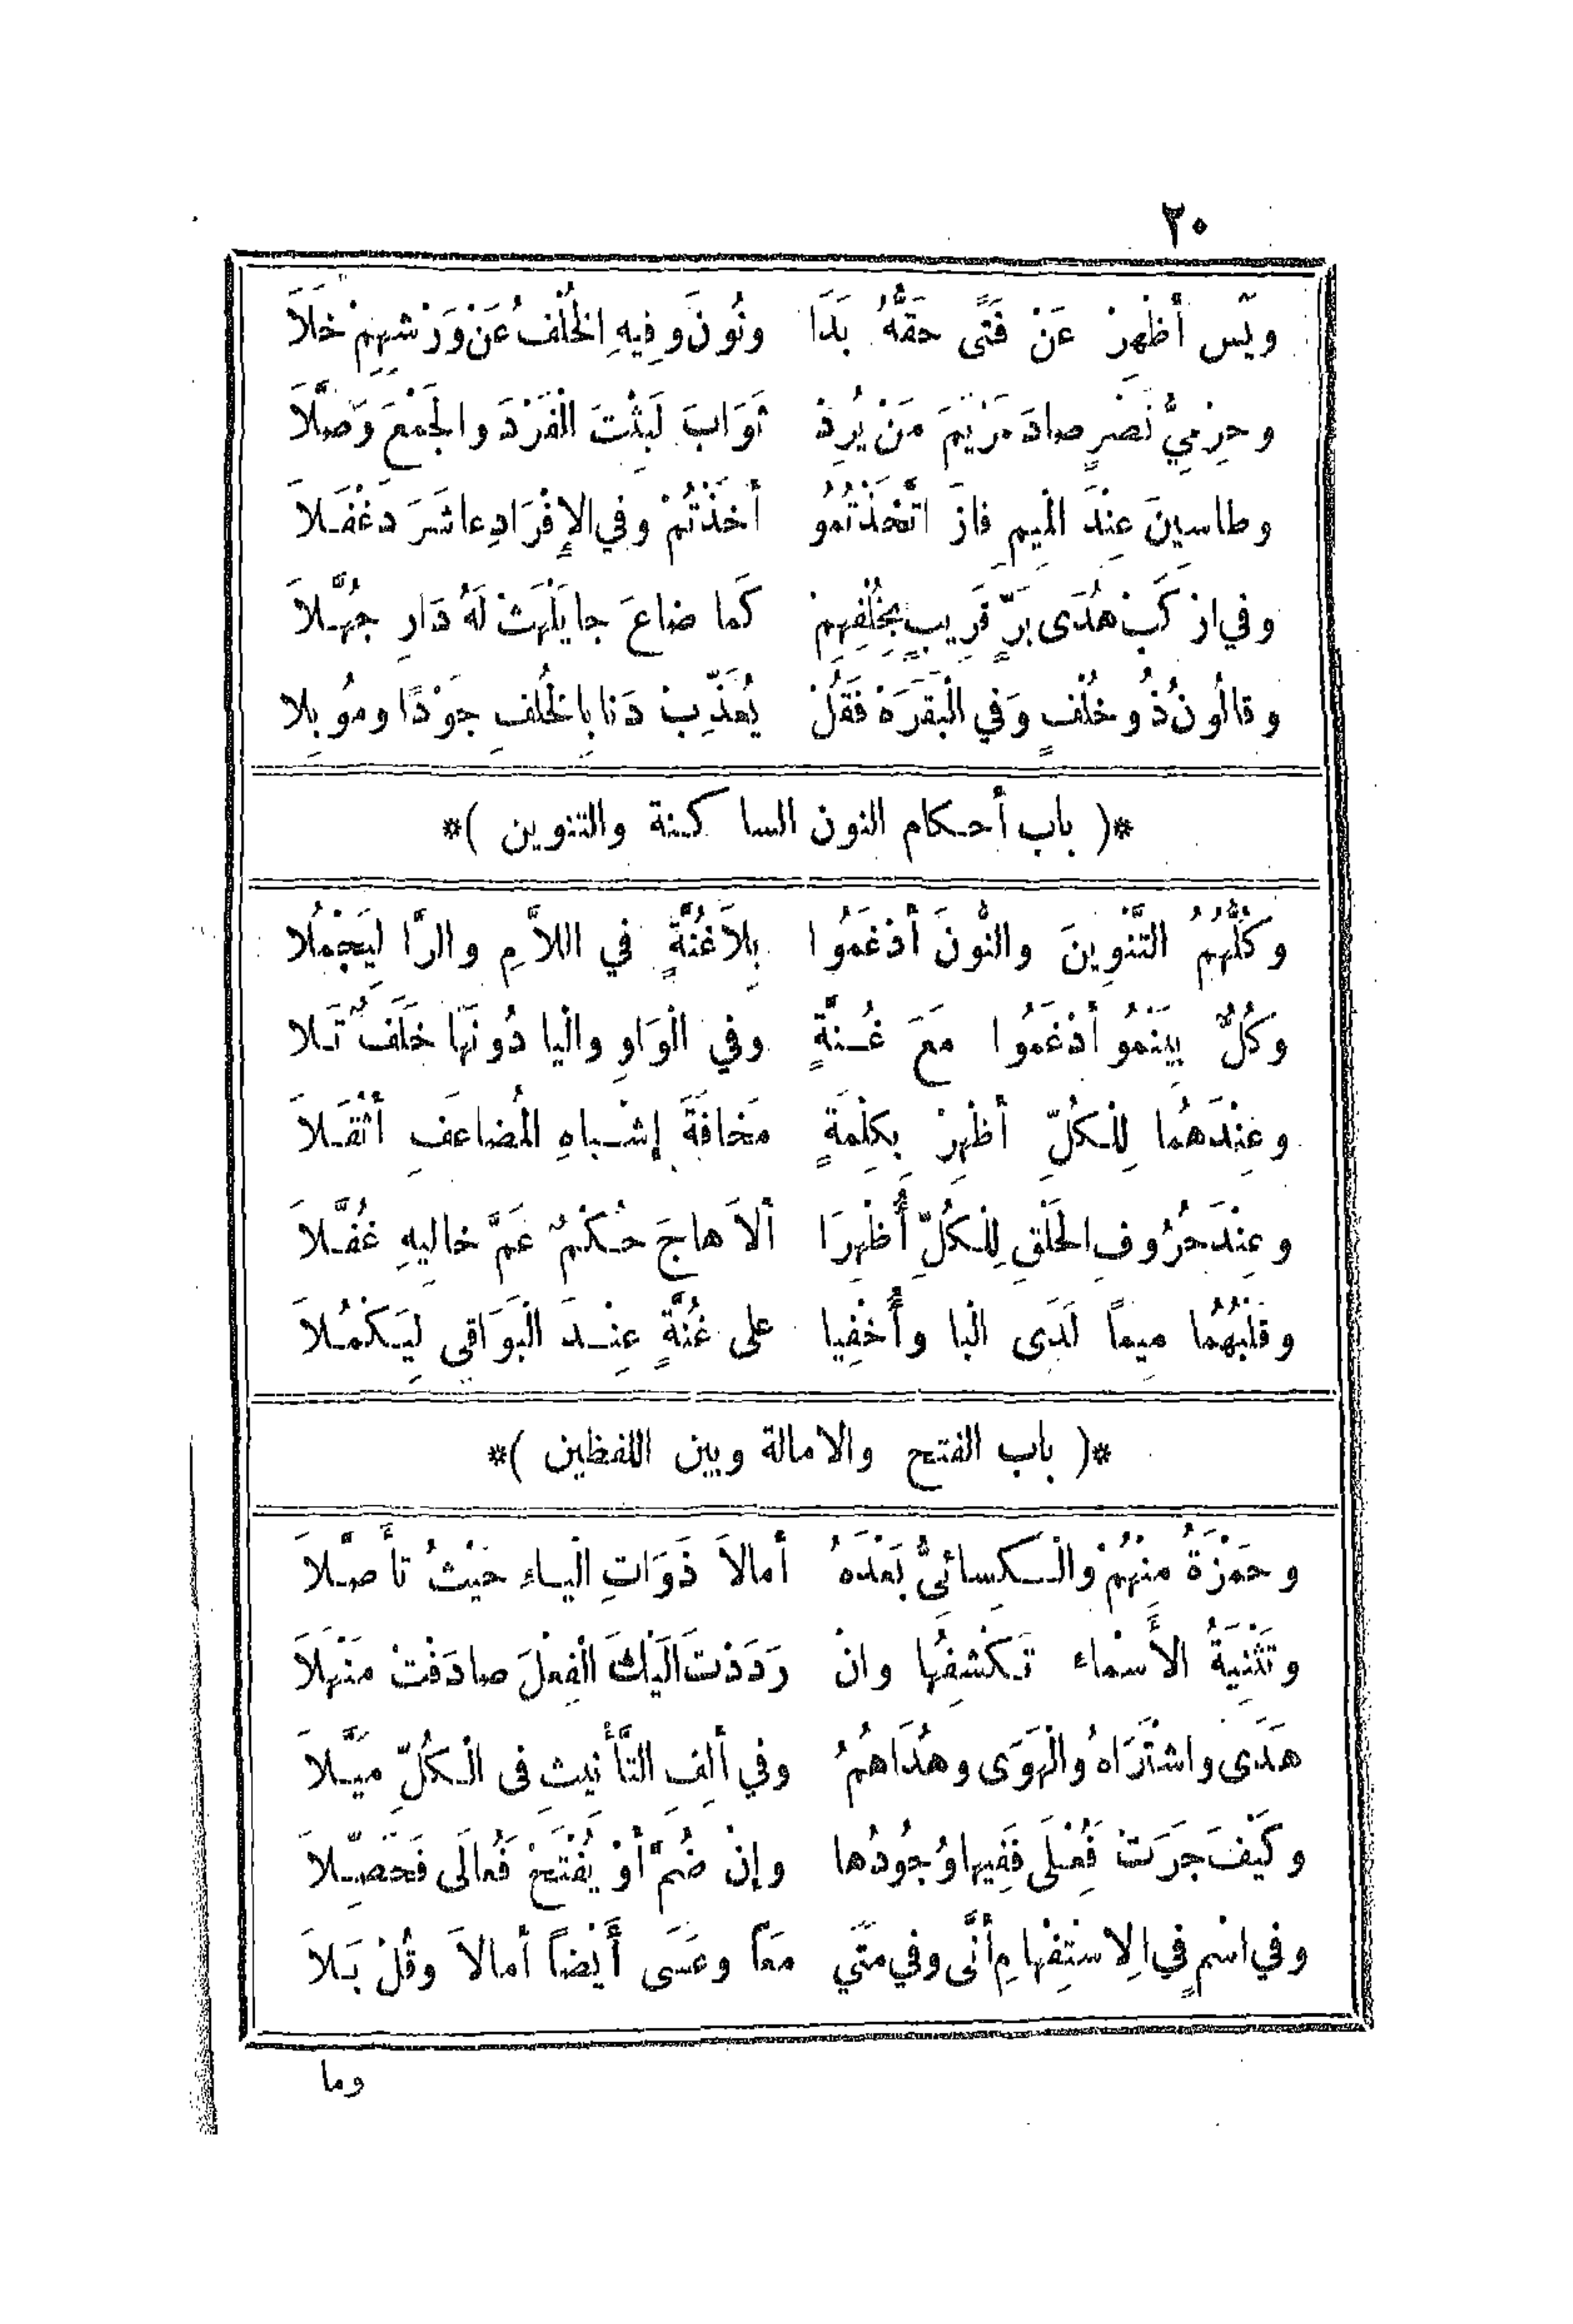 ٢٠
ويٓس أظْهِرْ عَنْ فَتًى حَقُّهُ بَدَا ونُونَ وفِيهِ الخُلْفُ عَنْ وَرْشِهِمْ خَلَاَ
وحِرْمِيُّ نَصْرٍ صادَ مَرْيَمَ مَنْ يُرِدْ ثَوَابَ لَبِثْتَ الْفَرْدَ والجَمْعَ وَصَّلَاَ
وطاسينَ عِنْدَ الْمِيمِ فازَ اتَّخَذْتُمُو أَخَذْتُمْ وفي الإِفْرَادِ عاشَرَ دَغْفَـلاَ
وفي ارْكَبْ هُدَى بَرٍّ قَرِيبٍ بِخُلْفِهِمْ كَما ضاعَ جا يَلْهَثْ لَهُ دَارِ جُهَّـلاَ
وقالُونُ ذُو خُلْفٍ وَفي الْبَقَرَهْ فَقُلْ يُعَذِّبْ دَنا بِالخُلْفِ جَوْدًا ومُوبِلا
*( باب أحكام النون الساكنة والتنوين )*
وكُلُّهُمُ التَّنْوِينَ والنُّونَ أدْغَمُوا بِلاَ غُنَّةٍ في اللاَّمِ والرَّا لِيَجْمُلا
وكُلٌّ بِيَنْمُو أدْغَمُوا مَعَ غُـنَّةٍ وفي الْوَاوِ والْيا دُونَهَا خَلَفٌ تَـلا
وعِنْدَهُما لِلْـكُلِّ أظْهِرْ بِكِلْمَةٍ مَخَافَةَ إشْـباهِ الْمُضاعَفِ أثْقَـلاَ
وعِنْدَ حُرُوفِ الحَلْقِ لِلْـكُلِّ أُظْهِرَا ألاَ هاجَ حُـكْمٌ عَمَّ خالِيهِ غُفَّـلاَ
وقَلْبُهُما مِيماً لَدَى الْبا وأُخْفِيا على غُنَّةٍ عِنْـدَ الْبَوَاقِي لِيَـكْمُـلاَ
*( باب الفتح والامالة وبين اللفظين )*
وحَمْزَةُ مِنْهُمْ والْـكِسائيُّ بَعْدَهُ أمالاَ ذَوَاتِ الْيـاءِ حَيْثُ تأَصَّـلاَ
وتَثْنِيَةُ الأَسْماء تَـكْشِفُها وانْ رَدَدْتَ الَيْكَ الْفِعْلَ صادَفْتَ مَنْهَلاَ
هَدَى واشْتَرَاهُ والْهَوَى وهُدَاهُمُ وفي ألِفِ التَّأْنيثِ في الْـكُلِّ مَيَّـلاَ
وكَيْفَ جَرَتْ فُِعْـلَى فَفِيها وُجُودُها وإنْ ضُمَّ أوْ يُفْتَحْ فُعالَى فَحَصِّـلاَ
وفي اسْمٍ في الِاسْتِفْهامِ أنَّى وفي مَتَى مَعاً وعَسَى أَيْضاً أمالاَ وقُلْ بَـلاَ
وما